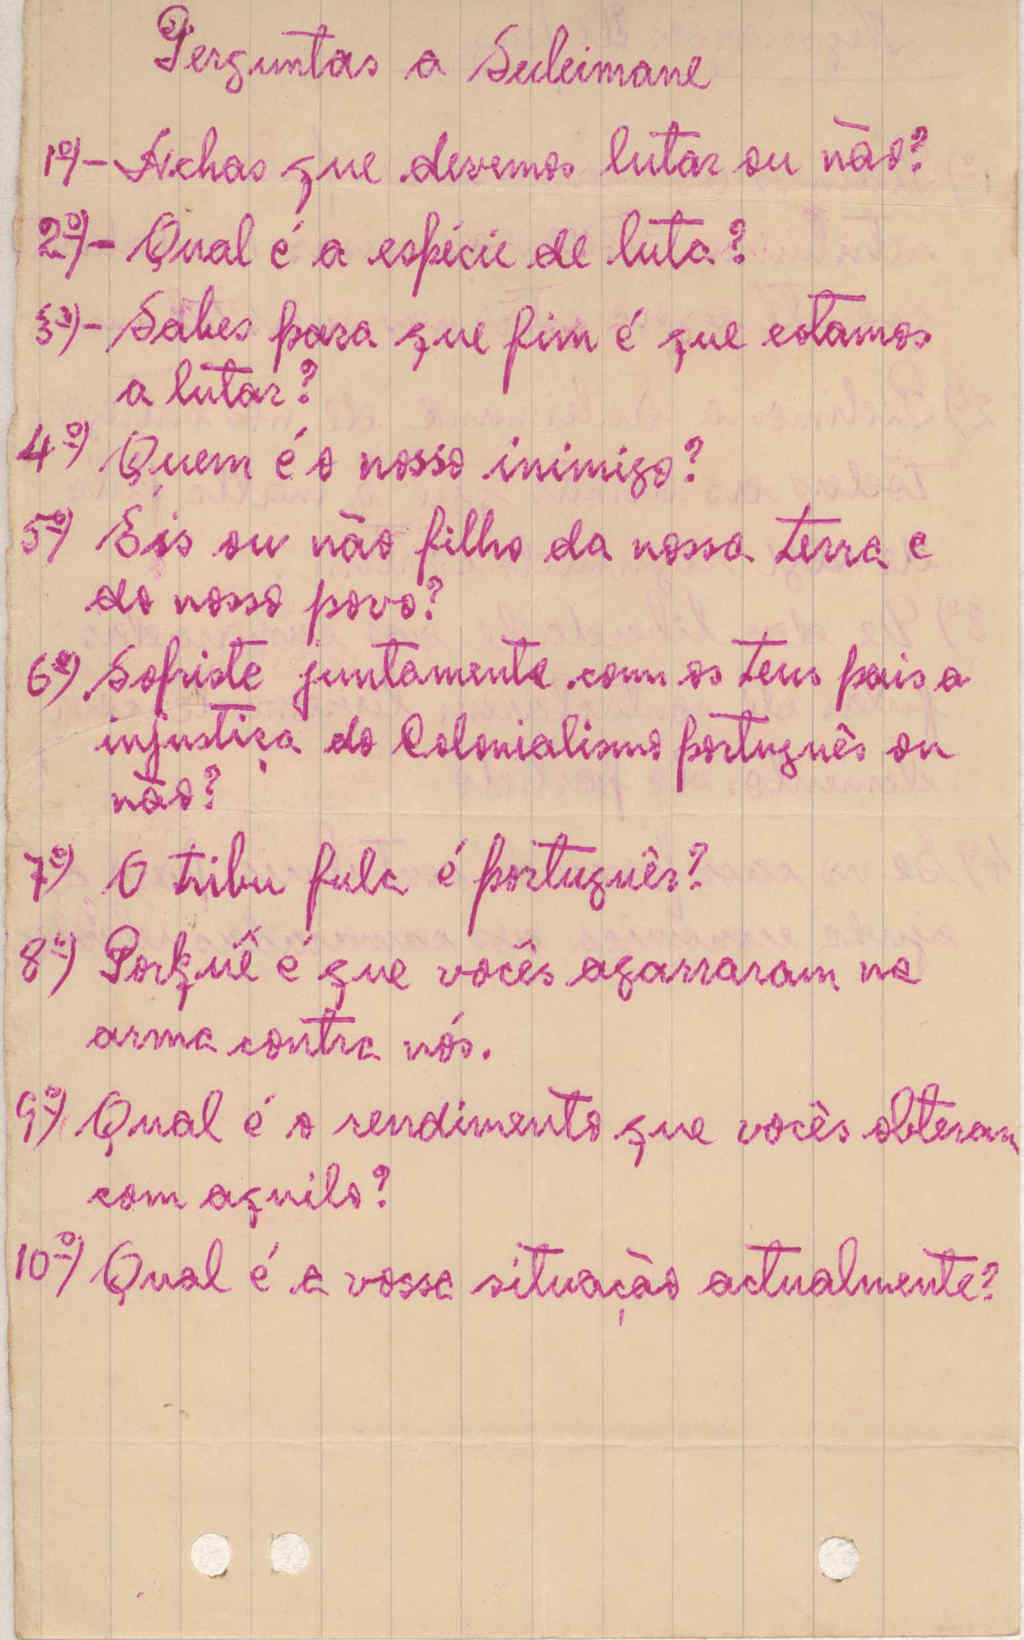 Perguntas a Suleimane
1º)- Achas que devemos lutar ou não?
2º)- Qual é a espécie de luta?
3º)- Sabes para que fim é que estamos
a lutar?
4º) Quem é o nosso inimigo?
5º) Eis ou não filho da nossa terra e
do nosso povo?
6º) Sofriste juntamente com os teus pais a
injustiça do Colonialismo português ou
não?
7º) O tribu fula é português?
8º) Porquê é que vocês agarraram na
arma contra nós.
9º) Qual é o rendimento que vocês obteram
com aquilo?
10º) Qual é a vossa situação actualmente?